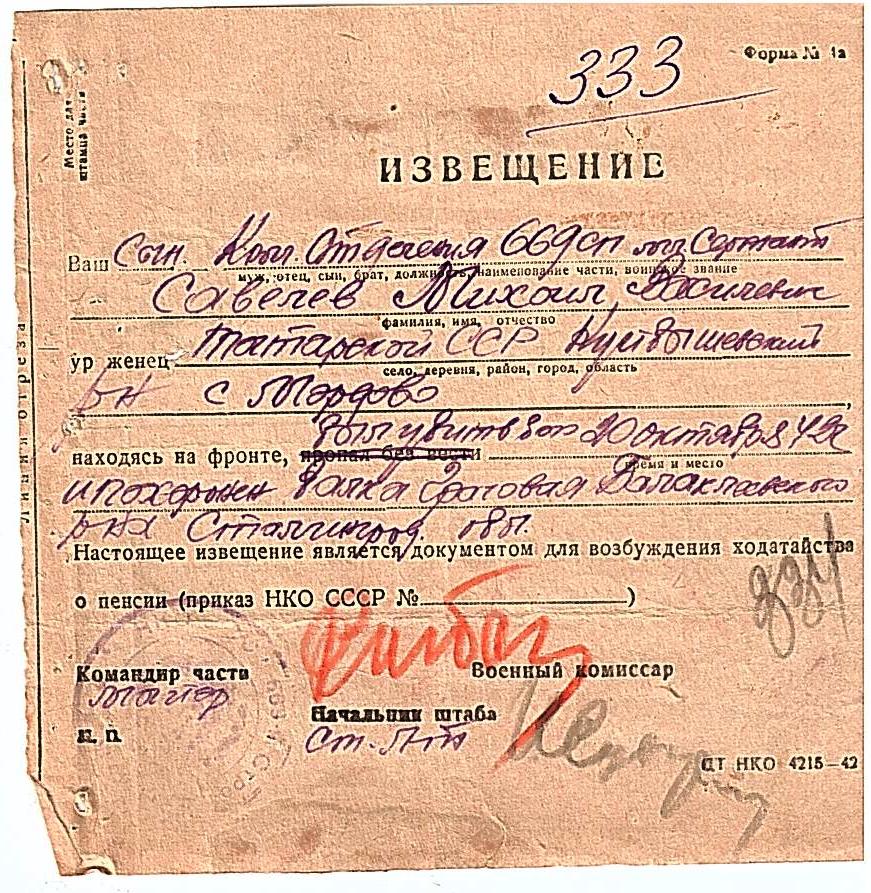 333
Форма № 1а
Место для
штампа части
Линия отреза
ИЗВЕЩЕНИЕ
Ваш сын. Ком. Отделения 669 сп мл. Сержант
муж, отец, сын, брат, должность, наименование части, воинское звание
Савелев Михаил Василевич
фамилия, имя, отчество
ур женец Татарской ССР Куйбышевский
село, деревня, район, город, область
рн с Мордово
был убит в бою 20 октября 42г
находясь на фронте, пропал без вести
время и место
и похоронен балка
р-на Сталинград. обл.
Настоящее извещение является документом для возбуждения ходатайства
о пенсии (приказ НКО СССР № )
Командир части
Военный комиссар
майор
Начальник штаба
М. П.
Ст. Л-т
ЦТ НКО 4215—42